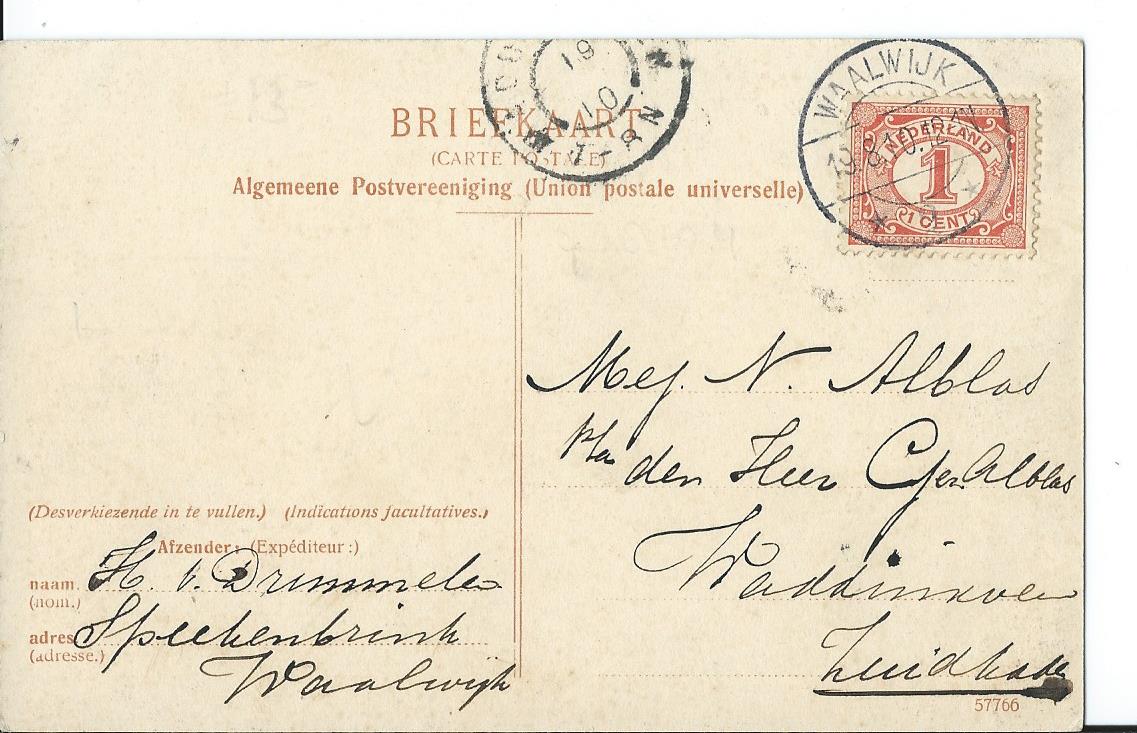 BRIEFKAART
(CARTE POSTALE)
Algemeene Postvereeniging (Union postale universelle)
WAALWIJK
NEDERLAND
1
1 CENT
19
10
7-8N
Mej. N. Alblas
den Heer Ger. Alblas
Waddinxveen
Zuidkade
(Desverkiezende in te vullen.) (Indications facultatives.)
Afzender: (Expéditeur:)
naam. H. v. Drimmelen
(nom.)
adres Speekenbrink
(adresse.) Waalwijk
57766